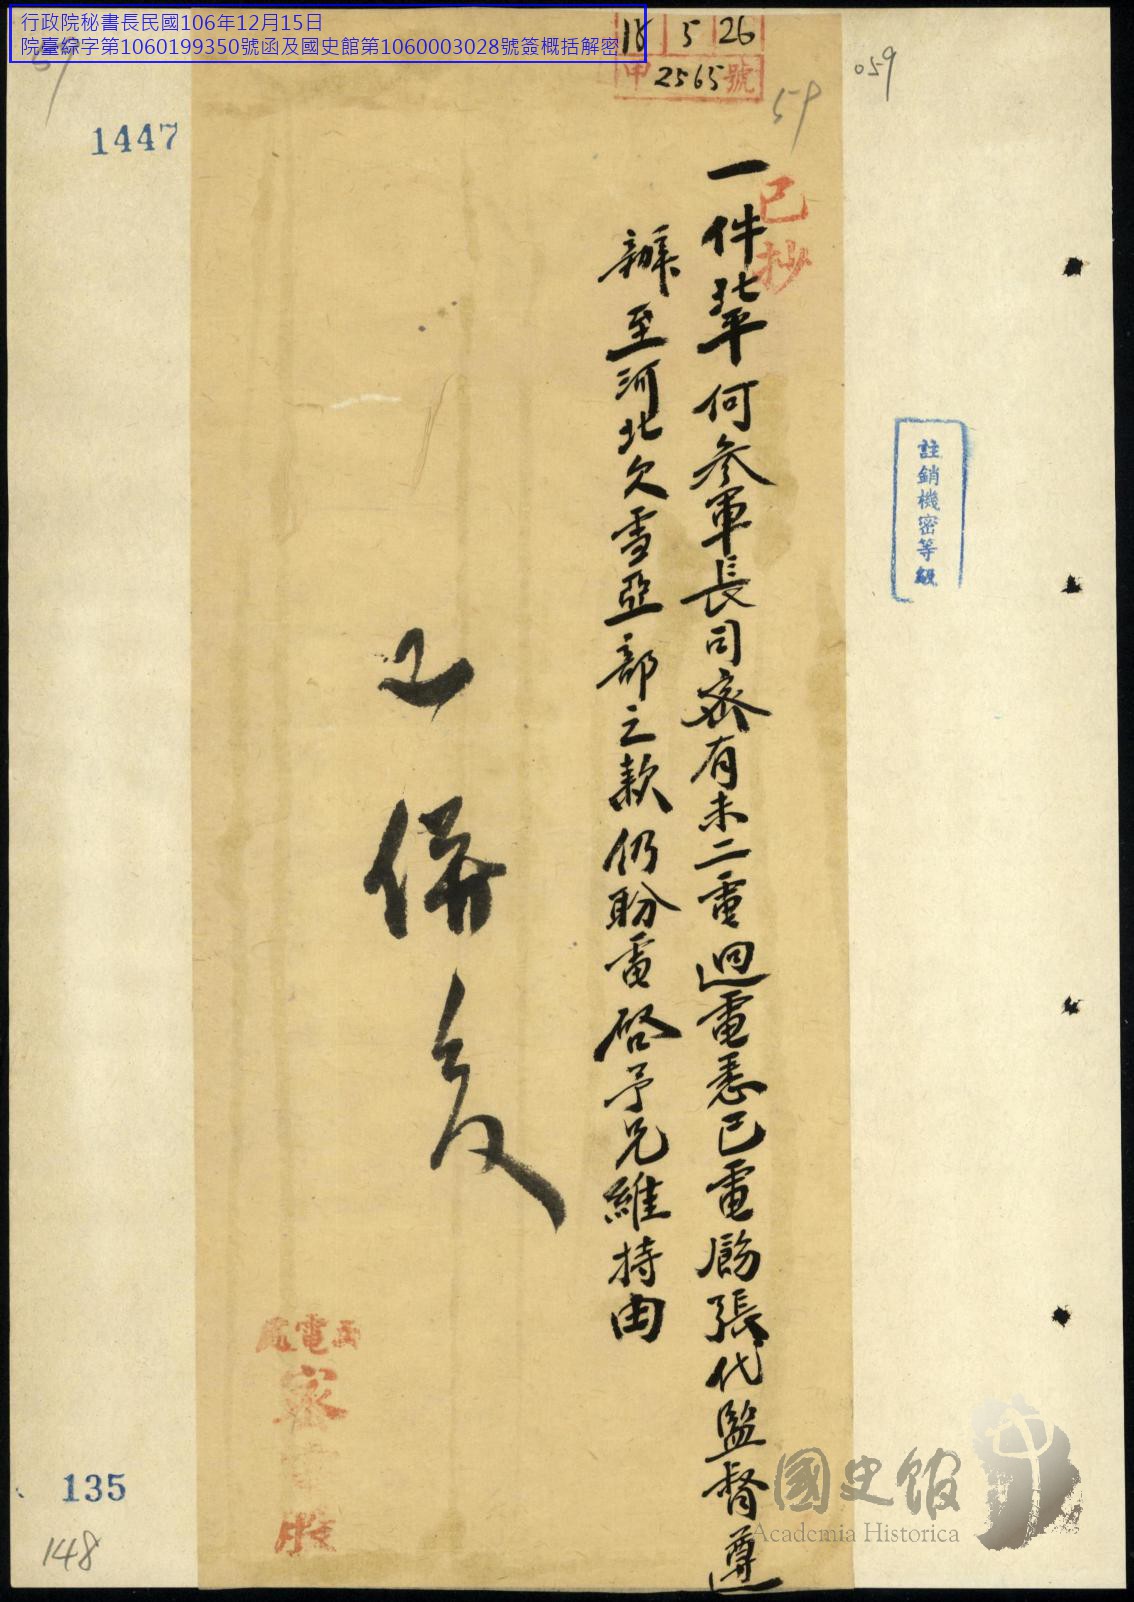 行政院秘書長民國106年12月15日
院臺綜字第1060199350號函及國史館第1060003028號簽概括解密
18 5 26
2565號
059
59
59
1447
已抄
註銷機密等級
一件北平何參軍長司密有未二電迴電悉已電飭張代監督遵
辦至河北欠雪亞部之款仍盼電啓予兄維持由
併
135
148
國史館
Academia Historica